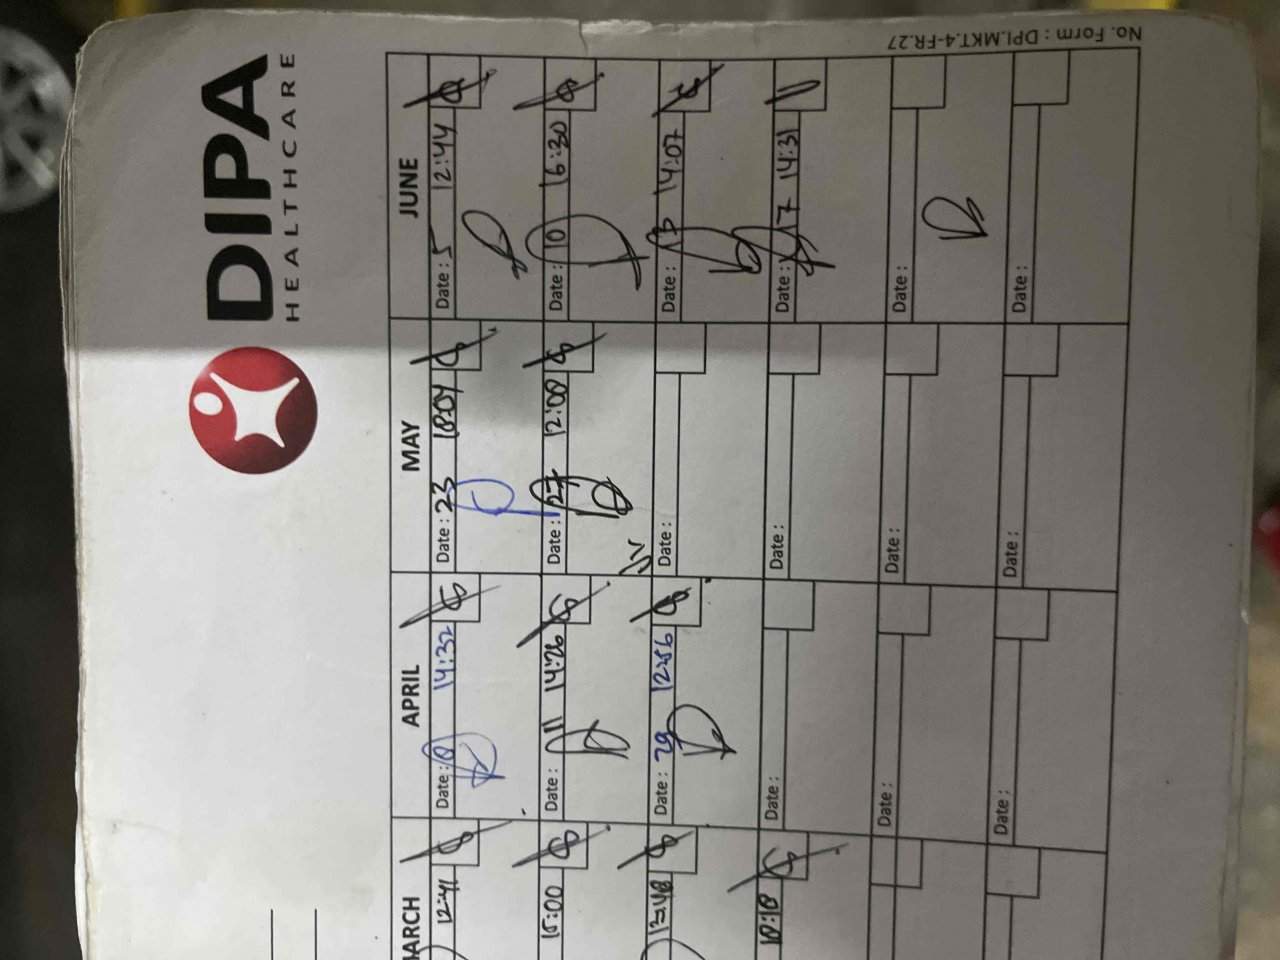 DIPA
HEALTHCARE
MARCH APRIL MAY JUNE
12:41 Date: 8 14:32 Date: 23 18:04 Date: 5 12:44
15:00 Date: 11 14:26 Date: 27 12:00 Date: 10 16:30
13:48 Date: 29 12:56 Date: Date: 13 14:07
18:18 Date: Date: Date: 17 14:31
Date: Date: Date:
Date: Date: Date:
No. Form : DPI.MKT.4-FR.27